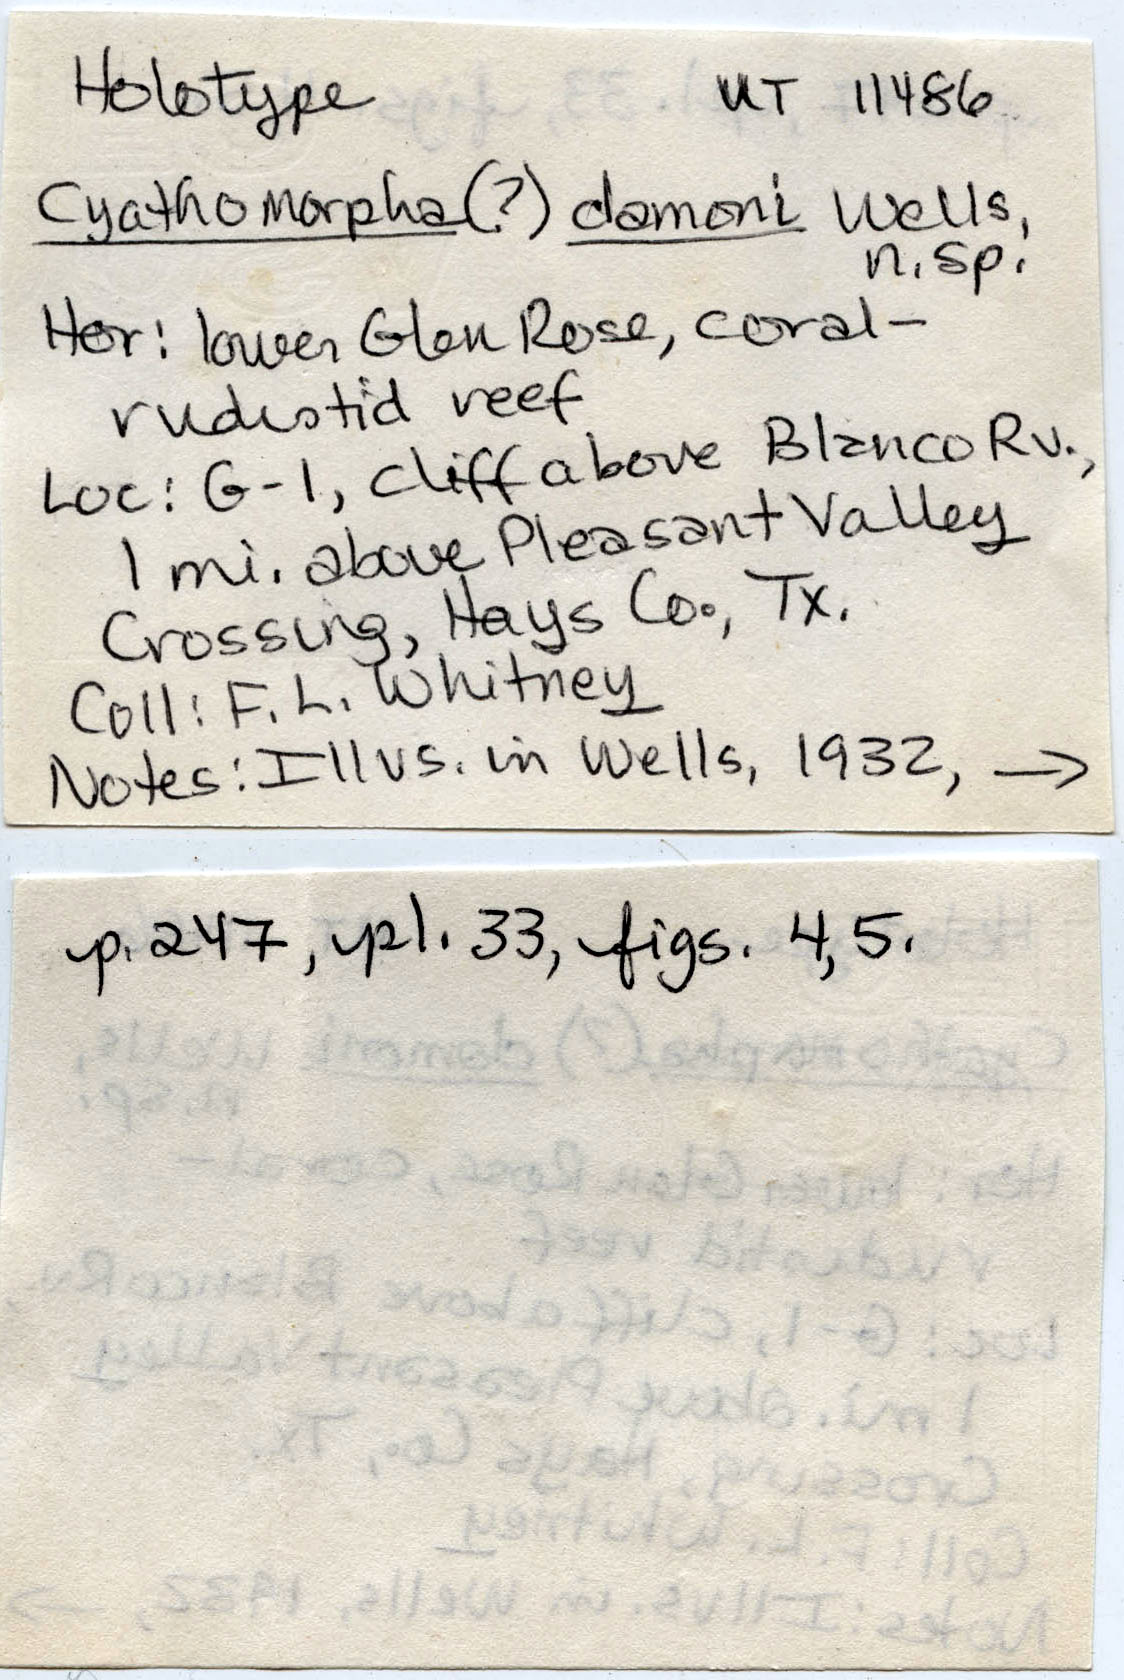 Holotype UT 11486
Cyathomorpha(?) damoni Wells,
n.sp.
Hor: lower Glen Rose, coral-
rudistid reef
Loc: G-1, cliff above Blanco Rv.,
1 mi. above Pleasant Valley
Crossing, Hays Co., Tx.
Coll: F.L. Whitney
Notes: Illus. in Wells, 1932, →
p. 247, pl. 33, figs. 4,5.